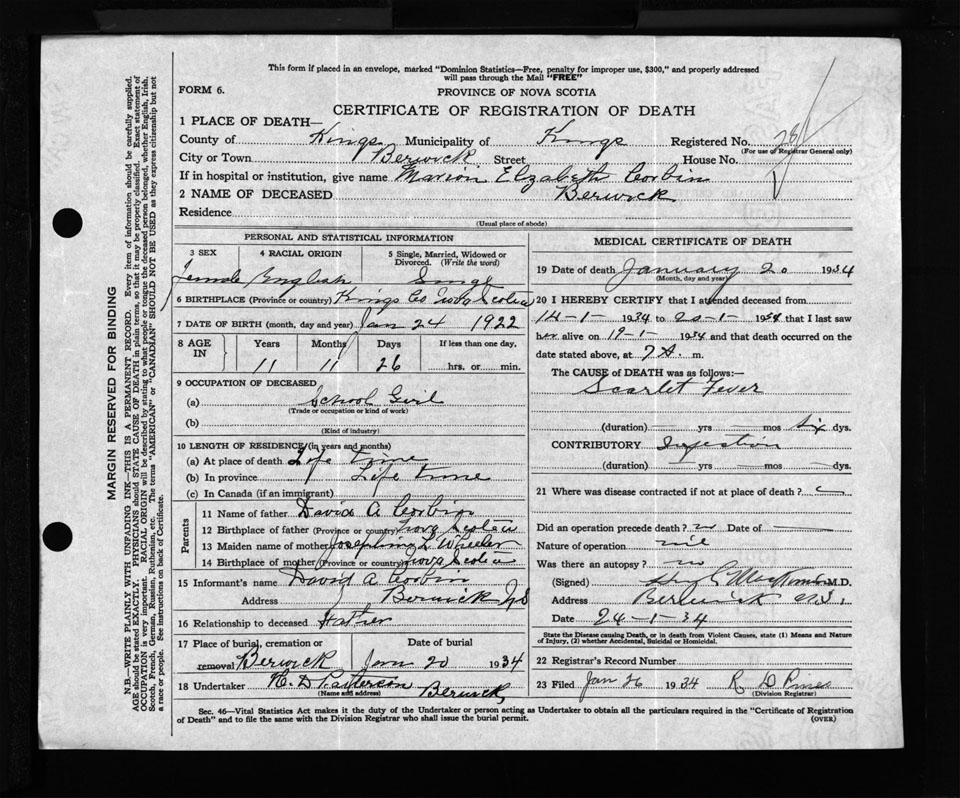 This form if placed in an envelope, marked "Dominion Statistics—Free, penalty for improper use, $300," and properly addressed
will pass through the Mail "FREE"
FORM 6.
PROVINCE OF NOVA SCOTIA
CERTIFICATE OF REGISTRATION OF DEATH
1 PLACE OF DEATH—
County of Kings Municipality of Kings Registered No. 28
(For use of Registrar General only)
City or Town Berwick Street House No.
If in hospital or institution, give name Marion Elzabeth Corbin
2 NAME OF DECEASED Berwick
Residence
(Usual place of abode)
PERSONAL AND STATISTICAL INFORMATION
3 SEX 4 RACIAL ORIGIN 5 Single, Married, Widowed or Divorced. (Write the word)
Female English Singe
6 BIRTHPLACE (Province or country) Kings Co Nova Scotia
7 DATE OF BIRTH (month, day and year) Jan 24 1922
8 AGE IN Years Months Days If less than one day,
11 11 26 hrs. or min.
9 OCCUPATION OF DECEASED
(a) School Girl
(Trade or occupation or kind of work)
(b)
(Kind of industry)
10 LENGTH OF RESIDENCE (in years and months)
(a) At place of death Life time
(b) In province Life time
(c) In Canada (if an immigrant)
Parents
11 Name of father David A Corbin
12 Birthplace of father (Province or country) Nova Scotia
13 Maiden name of mother Josephine L Wheeler
14 Birthplace of mother (Province or country) Nova Scotia
15 Informant's name David A Corbin
Address Berwick NS
16 Relationship to deceased Father
17 Place of burial, cremation or removal Berwick Date of burial Jan 20 1934
18 Undertaker H. D Patterson Berwick
(Name and address)
MEDICAL CERTIFICATE OF DEATH
19 Date of death January 20 1934
(Month, day and year)
20 I HEREBY CERTIFY that I attended deceased from
14-1- 1934 to 20-1- 1934 that I last saw
her alive on 19-1- 1934 and that death occurred on the
date stated above, at 7 A. m.
The CAUSE of DEATH was as follows:—
Scarlet Fever
(duration) yrs mos six dys.
CONTRIBUTORY
(duration) yrs mos dys.
21 Where was disease contracted if not at place of death?
Did an operation precede death? no Date of
Nature of operation nil
Was there an autopsy? no
(Signed) M.D.
Address Berwick N.S.
Date 24-1-34
State the Disease causing Death, or in death from Violent Causes, state (1) Means and Nature
of Injury, (2) whether Accidental, Suicidal or Homicidal.
22 Registrar's Record Number
23 Filed Jan 26 1934 R D
(Division Registrar)
Sec. 46—Vital Statistics Act makes it the duty of the Undertaker or person acting as Undertaker to obtain all the particulars required in the "Certificate of Registration
of Death" and to file the same with the Division Registrar who shall issue the burial permit.
(OVER)
MARGIN RESERVED FOR BINDING
N.B.—WRITE PLAINLY WITH UNFADING INK—THIS IS A PERMANENT RECORD. Every item of information should be carefully supplied.
AGE should be stated EXACTLY. PHYSICIANS should STATE CAUSE OF DEATH in plain terms, so that it may be properly classified. Exact statement of
OCCUPATION is very important. RACIAL ORIGIN will be described by stating to what people or tongue the deceased person belonged, whether English, Irish,
Scotch, French, German, Russian, Ruthenian, etc. The terms "AMERICAN" or "CANADIAN" SHOULD NOT BE USED as they express citizenship but not
a race or people. See instructions on back of Certificate.